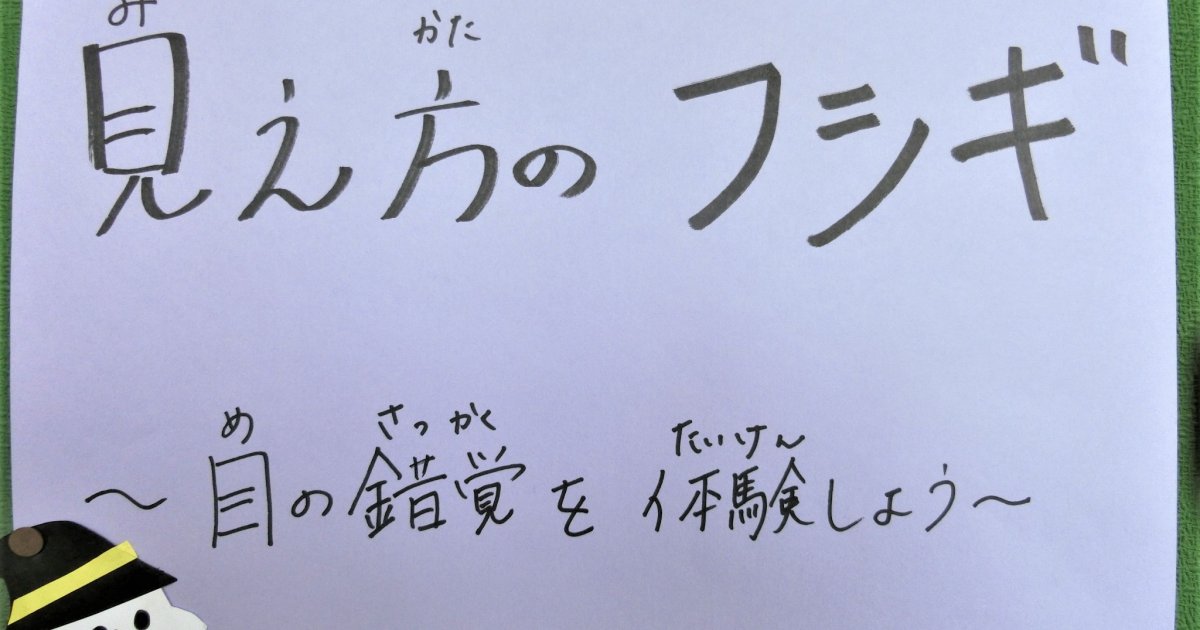 み かた
見え方のフシギ
め さっかく たいけん
~目の錯覚を体験しよう~